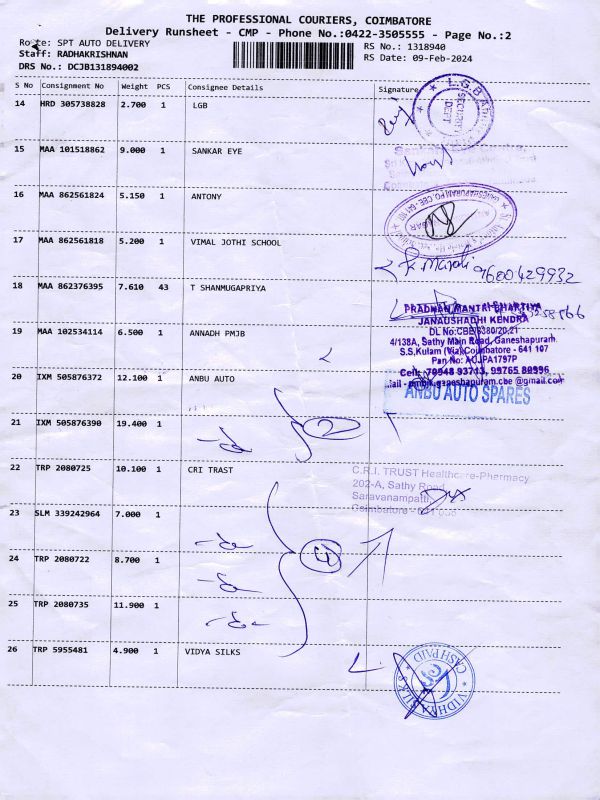 THE PROFESSIONAL COURIERS, COIMBATORE
Delivery Runsheet - CMP - Phone No.:0422-3505555 - Page No.:2
Route: SPT AUTO DELIVERY
RS No.: 1318940
Staff: RADHAKRISHNAN
RS Date: 09-Feb-2024
DRS No.: DCJB131894002
S No Consignment No Weight PCS Consignee Details Signature
14 HRD 305738828 2.700 1 LGB
L.G.B
SECURITY DEPT
15 MAA 101518862 9.000 1 SANKAR EYE
16 MAA 862561824 5.150 1 ANTONY
17 MAA 862561818 5.200 1 VIMAL JOTHI SCHOOL
9600429932
18 MAA 862376395 7.610 43 T SHANMUGAPRIYA
PRADHAN MANTRI BHARTIYA
JANAUSHADHI KENDRA
DL No:CBE/6380/20,21
19 MAA 102534114 6.500 1 ANNADH PMJB
4/138A, Sathy Main Road, Ganeshapuram.
S.S.Kulam (Via) Coimbatore - 641 107
Cell: 79048 93713, 99765 80996
20 IXM 505876372 12.100 1 ANBU AUTO
ANBU AUTO SPARES
21 IXM 505876390 19.400 1
-do- 2
22 TRP 2080725 10.100 1 CRI TRAST
C.R.I. TRUST Healthcare-Pharmacy
202-A, Sathy Road
Saravanampatti,
Coimbatore - 641 035
23 SLM 339242964 7.000 1
-do-
4
24 TRP 2080722 8.700 1
-do-
25 TRP 2080735 11.900 1
-do-
26 TRP 5955481 4.900 1 VIDYA SILKS
CASH PAID
VIDHYA SILKS